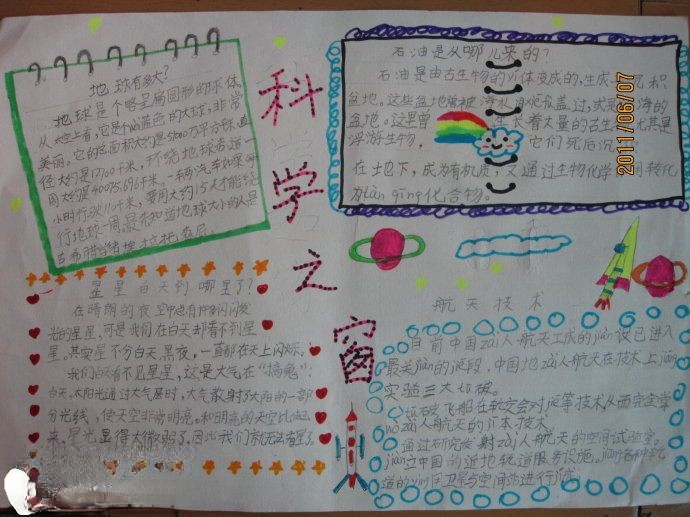 科学之窗
地球有多大?
地球是个略呈扁圆形的球体,
从太空上看,它是个蓝色的大球,非常
美丽。它的总面积大约是51000万平方米,直
径大约是12700千米,环绕地球赤道一
周大约是40075.696千米。一辆汽车如果每
小时行驶110千米,要用大约15天才能绕
行地球一周。最早知道地球大小的人是
古希腊学者埃拉托
石油是从哪儿来的?
石油是由古生物的尸体变成的,生成 积
盆地。这些盆地曾被海水 盖过,或是 海的
盆地。这里曾 生长着大量的古生 尤其是
浮游生物, 它们死后沉
在地下,成为有机质,又通过生物化学 转化
为lan qing化合物。
2011/06/07
星星白天到哪里了?
在晴朗的夜空中也有许多闪闪发
光的星星,可是我们在白天却看不到星
星。其实星不分白天、黑夜,一直都在天上闪烁。
我们白天看不见星星,这是大气在“搞鬼”:
白天,太阳光通过大气层时,大气散射了太阳的一部
分光线,使天空非常明亮,和明亮的天空比起
来,星光显得太微弱了,因此我们就无法看星了
航天技术
目前中国zai人航天工成的jian设已进入
最关jian的 段,中国地zai人航天在技术上jiang
实验三大 破。
破飞船在软交会对 等技术,从而完全掌
wo zai人航天的 本技术
通过研究发射zai人航天的空间试验室。
jian立中国的道地轨道服务设施。jian各种轨
道的 卫星与空间站进行